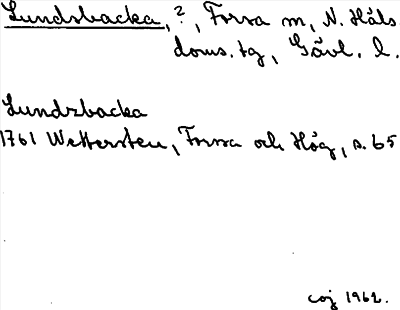 Lundsbacka, ?, Forsa m, N. Häls.
doms. tg, Gävl. l.
Lundzbacka
1761 Wettersten, Forsa och Hög, s. 65
coj 1962.